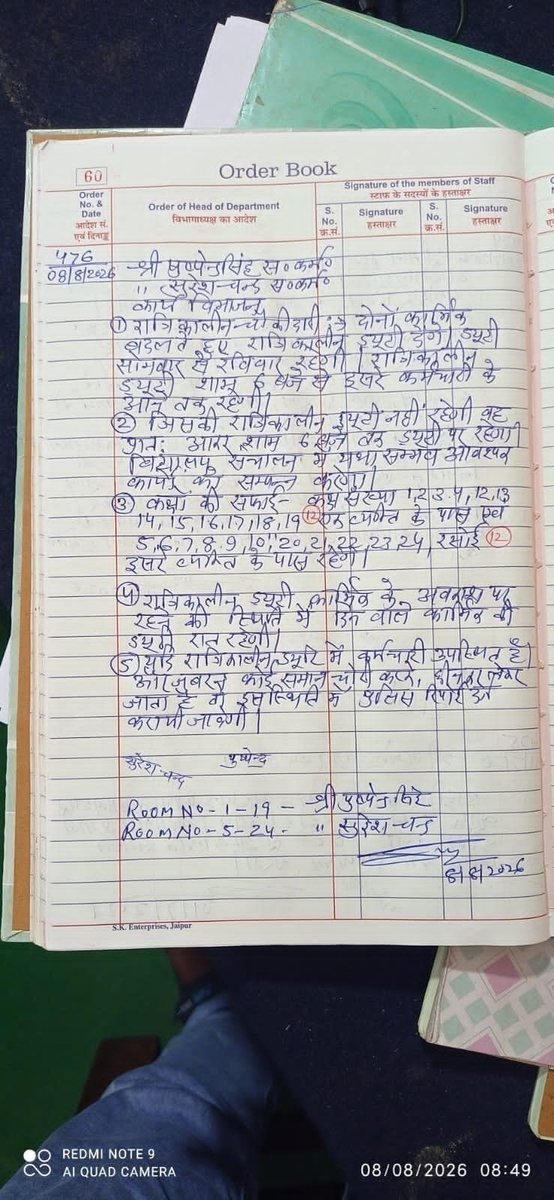 60
Order Book
Order No. & Date
आदेश सं. एवं दिनाङ्क
Order of Head of Department
विभागाध्यक्ष का आदेश
Signature of the members of Staff
स्टाफ के सदस्यों के हस्ताक्षर
S. No. क्र.सं.
Signature हस्ताक्षर
S. No. क्र.सं.
Signature हस्ताक्षर
476
08/8/2026
श्री पुष्पेन्द्रसिंह स०कर्म०
" सुरेश चन्द स०कर्म०
कार्य विभाजन
① रात्रिकालीन चौकीदारी :- दोनों कार्मिक
बदलते हुए रात्रिकालीन ड्यूटी देंगे। ड्यूटी
सोमवार से रविवार रहेगी। रात्रिकालीन
ड्यूटी शाम 6 बजे से दूसरे कर्मचारी के
आने तक रहेगी।
② जिसकी रात्रिकालीन ड्यूटी नहीं रहेगी वह
प्रात: आकर शाम 6 बजे तक ड्यूटी पर रहेगा।
विद्यालय संचालन में यथा सम्भव आवश्यक
कार्य सम्पन्न
③ कक्षों की सफाई- कक्ष संख्या 1, 2, 3, 4, 12, 13
14, 15, 16, 17, 18, 19 ⑫ एक व्यक्ति के पास एवं
5, 6, 7, 8, 9, 10, 11, 20, 21, 22, 23, 24, रसोई ⑫
दूसरे व्यक्ति के पास रहेगी।
④ रात्रिकालीन ड्यूटी कार्मिक के अवकाश पर
रहने की स्थिति में दिन वाले कार्मिक की
ड्यूटी रात रहेगी।
⑤ यदि रात्रिकालीन ड्यूटी में कर्मचारी उपस्थित है।
और जबरन कोई समान चोरी कर, छीनकर लेकर
जाता है तो इस स्थिति में पुलिस रिपोर्ट दर्ज
करायी जाएगी।
सुरेश चन्द
पुष्पेन्द्र
ROOM No - 1-19 - श्री पुष्पेन्द्र सिंह
ROOM No - 5-24 - " सुरेश चन्द
8/8/2026
S.K. Enterprises, Jaipur
REDMI NOTE 9
AI QUAD CAMERA
08/08/2026 08:49